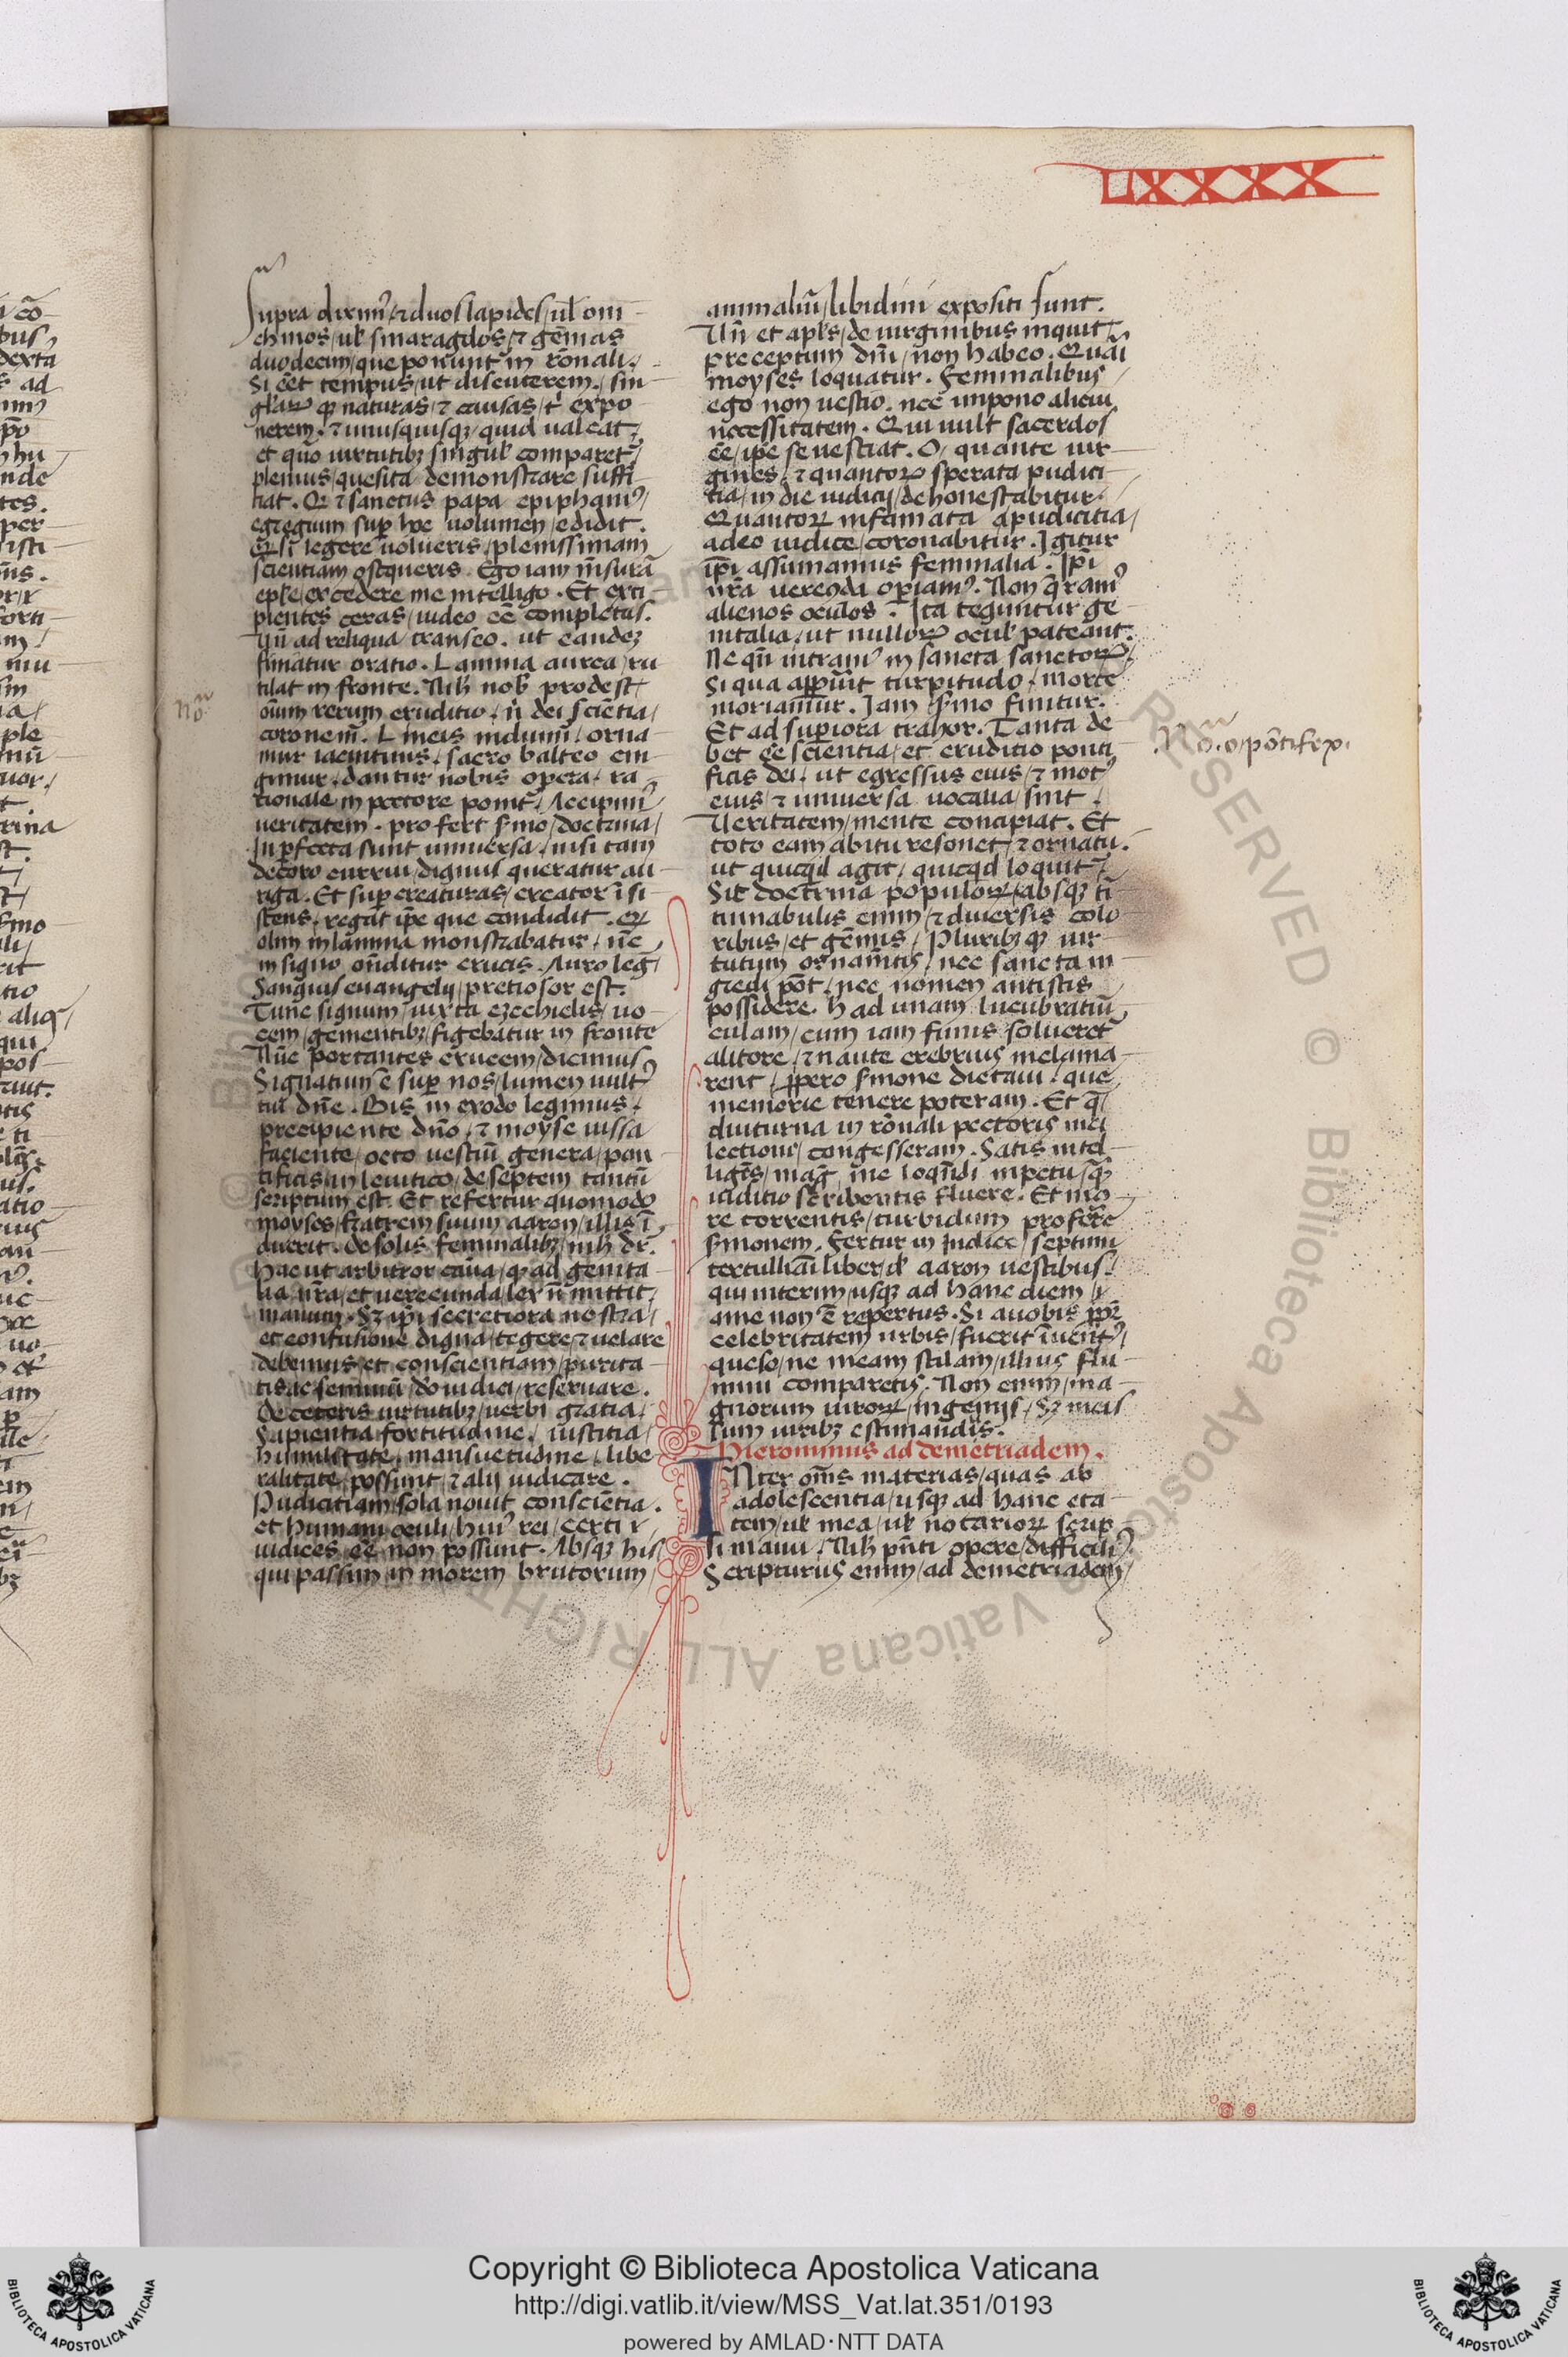 LXXXX
supra dixim⁹ ⁊ duos lapides ul' oni
chinos ul' smaragdos ⁊ gēmas
duodecim que ponunt̄ in rōnali.
Si eēt tempus ut discuterem. sin
gl'arꝝ qꝫ naturas ⁊ causas t' expo
nerem. ⁊ unusquisqꝫ quid ualeat
et quō uirtutibꝫ singul' comparet̄
plenius quesita demonstrare suffi
ciat. Qꝫ ⁊ sanctus papa epiphani⁹
egregium suꝑ hoc uolumen edidit.
Qꝫ si legere uolueris plenissimam
scientiam ɔsequeris. Ego iam m̄surā
epl'e excedere me intelligo. Et exci
pientes ceras uideo eē completas.
Vn̄ ad reliqua transeo. ut eandeꝫ
finiatur oratio. Lamina aurea ru
tilat in fronte. Nih' nob' prodest
oīum rerum eruditio. n̄ dei sciētia
coronem̄. Lineis induim̄ orna
mur iacintinis. sacro balteo cin
gimur. dantur nobis opera. ra
tionale in pectore ponit̄. Accipim⁹
ueritatem. profert s̄mo doctrina
Inꝑfecta sunt uniuersa nisi tam
decoro currui dignus queratur au
riga. Et suꝑ creaturas creator īsi
stens. regat ip̄e que condidit. Qꝫ
olim in lamina monstrabatur. nc̄
in signo on̄ditur crucis. Auro leḡ
Sanguis euangelij pretiosor est.
Tunc signum iuxta ezechielis uo
cem gementibꝫ figebatur in fronte
Nūc portantes crucem dicimus
Signatum ē suꝑ nos lumen uult⁹
tui dn̄e. Bis in exodo legimus.
precipiente dn̄o ⁊ moyse iussa
faciente octo uestiū genera pon
tificis. in leuitico de septem tantū
scriptum est. Et refertur quomodo
moyses fratrem suum aaron illis ī
duerit. de solis feminalibꝫ nih' dr̄.
hac ut arbitror cāua qꝫ ad genita
lia nr̄a et uerecunda lex n̄ mittit
manum. Sꝫ ip̄i secretiora nostra
et confusione digna tegere ⁊ uelare
debemus et conscientiam purita
tis ac feminū do iudici reseruare.
De ceteris uirtutibꝫ uerbi gratia
Sapientia fortitudine. iustitia
humilitate mansuetudine libe
ralitate possunt ⁊ alij iudicare.
Pudicitiam sola nouit conscientia.
et humani oculi hui⁹ rei certi
iudices eē non possunt. Absqꝫ his
qui passim in morem brutorum
animaliū libidini expositi sunt.
Vn̄ et apl's de uirginibus inquit
preceptum dn̄i non habeo. Quāi
moyses loquatur. Feminalibus
ego non uestio. nec impono alicui
necessitatem. Qui uult sacerdos
eē ip̄e se uestiat. O quante uir
gines ⁊ quantoꝝ sperata pudici
tia in die iudicij dehonestabitur.
Quantoꝝ infamata apudicitia
a deo iudice coronabitur. Igitur
ip̄i assumamus feminalia. Ip̄i
nr̄a uerenda oꝑiam⁹. Non q̄ram⁹
alienos oculos. Ita teguntur ge
nitalia ut nulloꝝ ocul' pateant.
Ne qn̄ intram⁹ in sancta sanctoꝝ
Si qua appāuit turpitudo. morte
moriamur. Iam s̄mo finitur.
Et ad suꝑiora trahor. Tanta de
bet eē scientia et eruditio ponti
ficis dei. ut egressus eius ⁊ mot⁹
eius ⁊ uniuersa uocalia sint.
Veritatem mente concipiat. Et
toto eam abitu resonet ⁊ ornatu.
ut quicq̄d agit quicq̄d loquit̄
Sit doctrina populoꝝ absqꝫ tī
tinnabulis enim ⁊ diuersis colo
ribus et gēmis. Pluribꝫ qꝫ uir
tutum ornam̄tis nec sancta in
gredi pōt nec nomen antistis
possidere. h ad unam lucubratiū
culam cum iam funis solueret̄
a litore ⁊ naute crebrius inclama
rent. ꝓpero s̄mone dictaui. que
memorie tenere poteram. Et q̄
diuturna in rōnali pectoris mei
lectione congesseram. Satis intel
ligēs maḡ me loqn̄di inpetu qꝫ
iuditio scribentis fluere. Et mō
re torrentis turbidum proferre
s̄monem. Fertur in Indice septimi
tertulliani liber d' aaron uestibus
qui interim usqꝫ ad hanc diem
a me non ē repertus. Si a uobis ꝓpt̄
celebritatem urbis fuerit īuent⁹
queso ne meam stilam illius flu
mini comparetis. Non enim ma
gnorum uiroꝝ ingenijs. Sꝫ meis
sum uiribꝫ estimandus.
Hieronimus ad demetriadem.
INter om̄s materias quas ab
adolescentia usqꝫ ad hanc eta
tem ul' mea ul' notarioꝝ scrip
si manu. Nih' pn̄ti opere difficili⁹
Scripturus enim ad demetriadem
No. o pōtifex.
RESERVED © Biblioteca Apostolica Vaticana ALL RIGHT
Copyright © Biblioteca Apostolica Vaticana
http://digi.vatlib.it/view/MSS_Vat.lat.351/0193
powered by AMLAD·NTT DATA
BIBLIOTECA APOSTOLICA VATICANA
BIBLIOTECA APOSTOLICA VATICANA